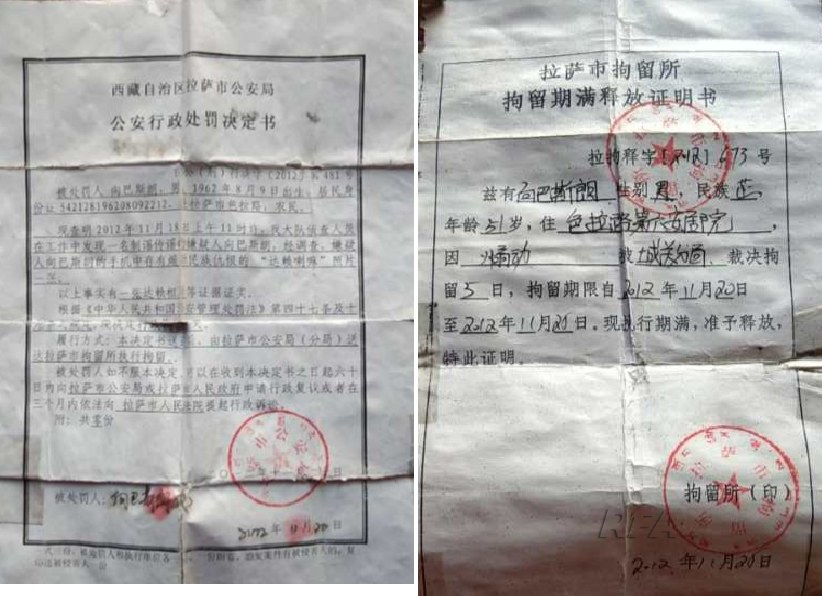 西藏自治区拉萨市公安局
公安行政处罚决定书
行决字〔2012〕第481号
被处罚人向巴斯朗，男，1962年8月9日出生，居民身
份证542128196208092212，拉萨市色拉路，农民。
现查明2012年11月18日上午11时许，我大队侦查人员
在工作中发现一名制谣传谣的嫌疑人向巴斯朗，经调查，嫌疑
人向巴斯朗的手机中存有煽动民族仇恨的“达赖喇嘛”照片
一张。
以上事实有一张达赖相片等证据证实。
根据《中华人民共和国治安管理处罚法》第四十七条及十
履行方式：本决定书送达，由拉萨市公安局（分局）送
达拉萨市拘留所执行拘留。
被处罚人如不服本决定，可以在收到本决定书之日起六十
日内向拉萨市公安局或拉萨市人民政府申请行政复议或者在
三个月内依法向 拉萨市人民法院提起行政诉讼。
附：共 份
被处罚人：向巴斯朗
2012年11月20日
拉萨市拘留所
拘留期满释放证明书
拉拘释字[2012]673号
兹有向巴斯朗 性别男，民族藏
年龄51岁，住 色拉路第六居民院，
因 煽动 被 城关分局 裁决拘
留5日，拘留期限自2012年11月20日
至2012年11月21日。现执行期满，准予释放，
特此证明。
拘留所（印）
2012年11月20日